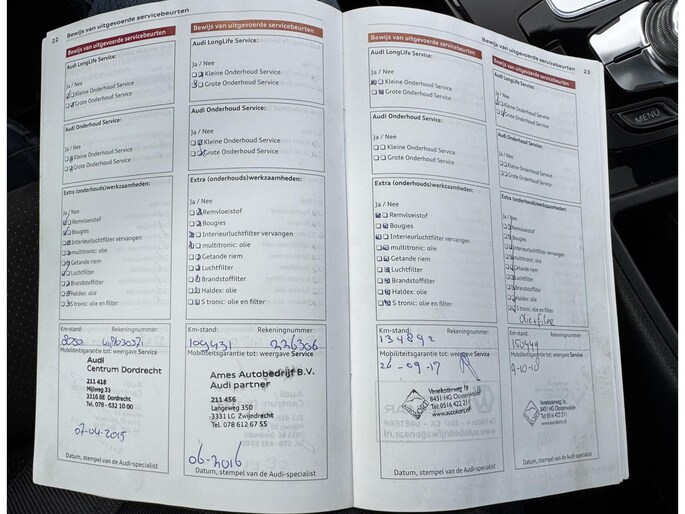 22 Bewijs van uitgevoerde servicebeurten
Bewijs van uitgevoerde servicebeurten
Audi LongLife Service:
Ja / Nee
Kleine Onderhoud Service
Grote Onderhoud Service
Audi Onderhoud Service:
Ja / Nee
Kleine Onderhoud Service
Grote Onderhoud Service
Extra (onderhouds)werkzaamheden:
Ja / Nee
Remvloeistof
Bougies
Interieurluchtfilter vervangen
multitronic: olie
Getande riem
Luchtfilter
Brandstoffilter
Haldex: olie
S tronic: olie en filter
Km-stand: Rekeningnummer:
Mobiliteitsgarantie tot: weergave Service
Audi
Centrum Dordrecht
211 418
Mijlweg 33
3316 BE Dordrecht
Tel. 078 - 632 10 00
07-04-2015
Datum, stempel van de Audi-specialist
Bewijs van uitgevoerde servicebeurten
Audi LongLife Service:
Ja / Nee
Kleine Onderhoud Service
Grote Onderhoud Service
Audi Onderhoud Service:
Ja / Nee
Kleine Onderhoud Service
Grote Onderhoud Service
Extra (onderhouds)werkzaamheden:
Ja / Nee
Remvloeistof
Bougies
Interieurluchtfilter vervangen
multitronic: olie
Getande riem
Luchtfilter
Brandstoffilter
Haldex: olie
S tronic: olie en filter
Km-stand: Rekeningnummer:
109431 226306
Mobiliteitsgarantie tot: weergave Service
Ames Autobedrijf B.V.
Audi partner
211 456
Langeweg 350
3331 LG Zwijndrecht
Tel. 078 612 67 55
06-2016
Datum, stempel van de Audi-specialist
Bewijs van uitgevoerde servicebeurten 23
Bewijs van uitgevoerde servicebeurten
Audi LongLife Service:
Ja / Nee
Kleine Onderhoud Service
Grote Onderhoud Service
Audi Onderhoud Service:
Ja / Nee
Kleine Onderhoud Service
Grote Onderhoud Service
Extra (onderhouds)werkzaamheden:
Ja / Nee
Remvloeistof
Bougies
Interieurluchtfilter vervangen
multitronic: olie
Getande riem
Luchtfilter
Brandstoffilter
Haldex: olie
S tronic: olie en filter
Km-stand: Rekeningnummer:
134892
Mobiliteitsgarantie tot: weergave Service
26-09-17
Venekoterweg 19
8431 HG Oosterwolde
Tel: 0516 422 311
Datum, stempel van de Audi-specialist
Bewijs van uitgevoerde servicebeurten
Audi LongLife Service:
Ja / Nee
Kleine Onderhoud Service
Grote Onderhoud Service
Audi Onderhoud Service:
Ja / Nee
Kleine Onderhoud Service
Grote Onderhoud Service
Extra (onderhouds)werkzaamheden:
Ja / Nee
Remvloeistof
Bougies
Interieurluchtfilter vervangen
multitronic: olie
Getande riem
Luchtfilter
Brandstoffilter
Haldex: olie
S tronic: olie en filter
Km-stand: Rekeningnummer:
Mobiliteitsgarantie tot: weergave Service
9-10-18
Datum, stempel van de Audi-specialist
MENU